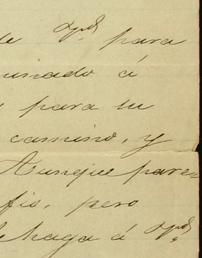 de Vd. para
minado á
para tu
camino, y
Aunque pare-
fio, pero
haga á Vd.